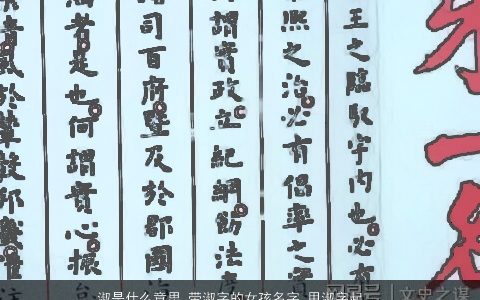 第一名
王之臨馭宇内也必
熙之治必有倡率之實
謂實政立紀綱飭法度
司百府暨及於郡國
者是也何謂實心振
於輦轂邦畿
淑是什么意思 带淑字的女孩名字 用淑字起
文史之谋